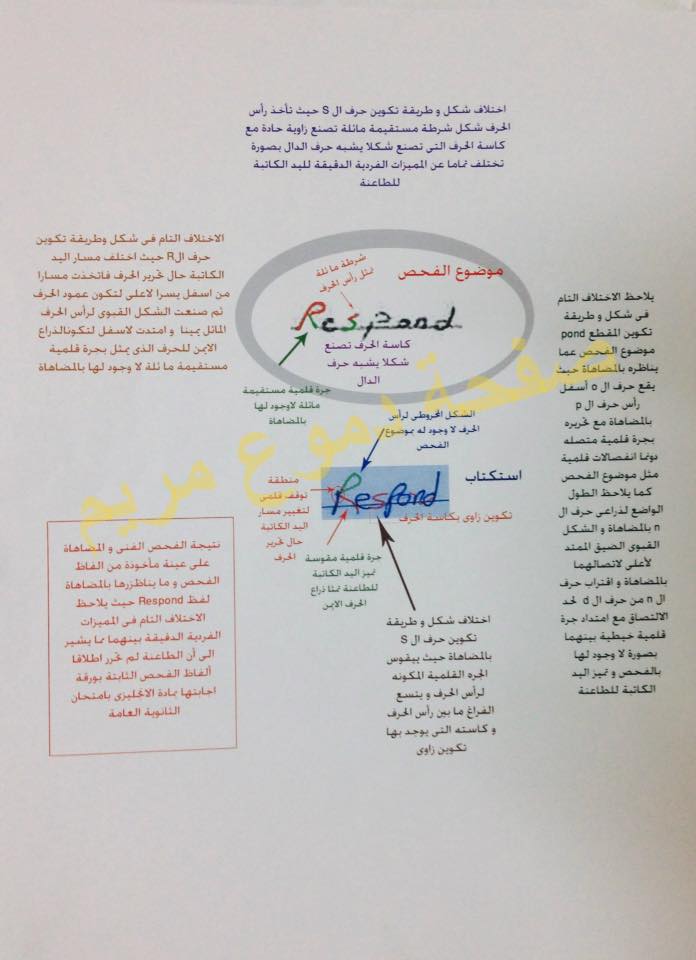 اختلاف شكل و طريقة تكوين حرف ال S حيث تأخذ رأس
الحرف شكل شرطة مستقيمة مائلة تصنع زاوية حادة مع
كاسة الحرف التى تصنع شكلا يشبه حرف الدال بصورة
تختلف تماما عن المميزات الفردية الدقيقة لليد الكاتبة
للطاعنة
الاختلاف التام فى شكل وطريقة تكوين
حرف الR حيث اختلف مسار اليد
الكاتبة حال تحرير الحرف فاتخذت مسارا
من اسفل يسرا لاعلى لتكون عمود الحرف
ثم صنعت الشكل القبوى لرأس الحرف
المائل يمينا و امتدت لاسفل لتكونالذراع
الايمن للحرف الذى يمثل بجرة قلمية
مستقيمة مائلة لا وجود لها بالمضاهاة
موضوع الفحص
شرطة مائلة
تمثل رأس الحرف
Respond
كاسة الحرف تصنع
شكلا يشبه حرف
الدال
جرة قلمية مستقيمة
مائلة لاوجود لها
بالمضاهاة
يلاحظ الاختلاف التام
فى شكل و طريقة
تكوين المقطع pond
موضوع الفحص عما
يناظره بالمضاهاة حيث
يقع حرف ال o أسفل
رأس حرف ال p
بالمضاهاة مع تحريره
بجرة قلمية متصله
دونما انفصالات قلمية
مثل موضوع الفحص
كما يلاحظ الطول
الواضع لذراعى حرف ال
n بالمضاهاة و الشكل
القبوى الضيق الممتد
لأعلى لاتصالهما
بالمضاهاة و اقتراب حرف
ال n من حرف ال d لحد
الالتصاق مع امتداد جرة
قلمية خيطية بينهما
بصورة لا وجود لها
بالفحص و تميز اليد
الكاتبة للطاعنة
صفحة دموع مريم
الشكل المخروطى لرأس
الحرف لا وجود له بموضوع
الفحص
استكتاب
Respond
منطقة
توقف قلمى
لتغيير مسار
اليد الكاتبة
حال تحرير
الحرف
تكوين زاوى بكاسة الحرف
جرة قلمية مقوسة
تميز اليد الكاتبة
للطاعنة تمثا ذراع
الحرف الايمن
اختلاف شكل و طريقة
تكوين حرف ال S
بالمضاهاة حيث بيقوس
الجره القلمية المكونه
لرأس الحرف و يتسع
الفراغ ما بين رأس الحرف
و كاسته التى يوجد بها
تكوين زاوى
نتيجة الفحص الفنى و المضاهاة
على عينة مأخوذة من الفاظ
الفحص و ما يناظزرها بالمضاهاة
لفظ Respond حيث يلاحظ
الاختلاف التام فى المميزات
الفردية الدقيقة بينهما مما يشير
الى أن الطاعنة لم تحرر اطلاقا
ألفاظ الفحص الثابتة بورقة
اجابتها بمادة الانجليزى بامتحان
الثانوية العامة